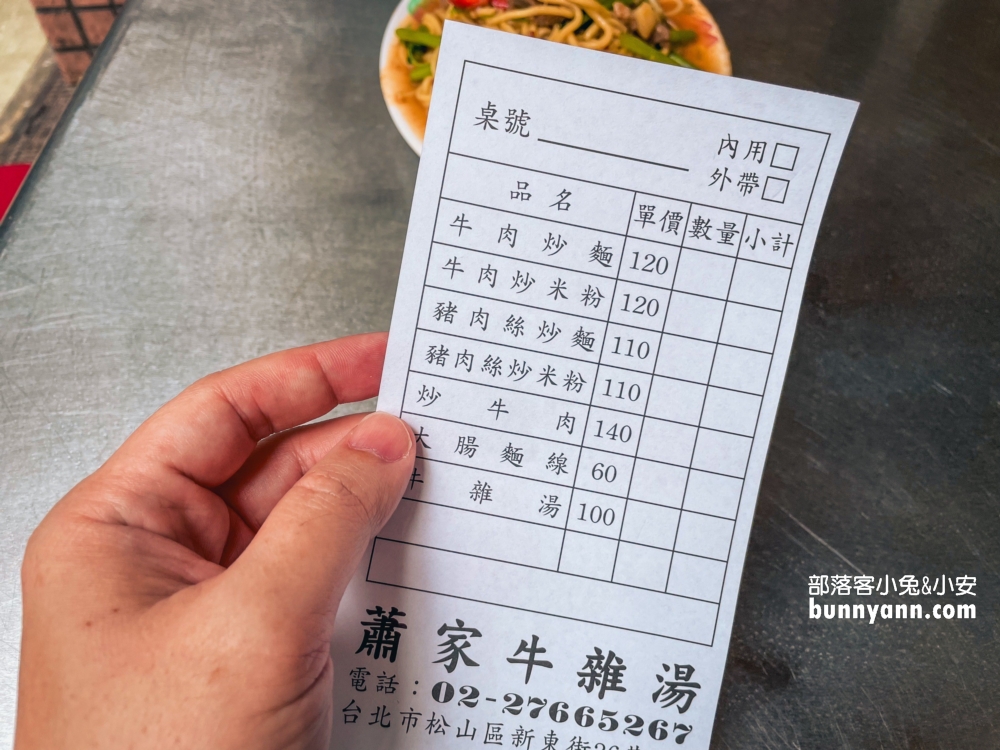 桌號
內用□
外帶□
品名 單價 數量 小計
牛肉炒麵 120
牛肉炒米粉 120
豬肉絲炒麵 110
豬肉絲炒米粉 110
炒牛肉 140
大腸麵線 60
牛雜湯 100
蕭家牛雜湯
電話：02-27665267
台北市松山區新東街
部落客小兔&小安
bunnyann.com